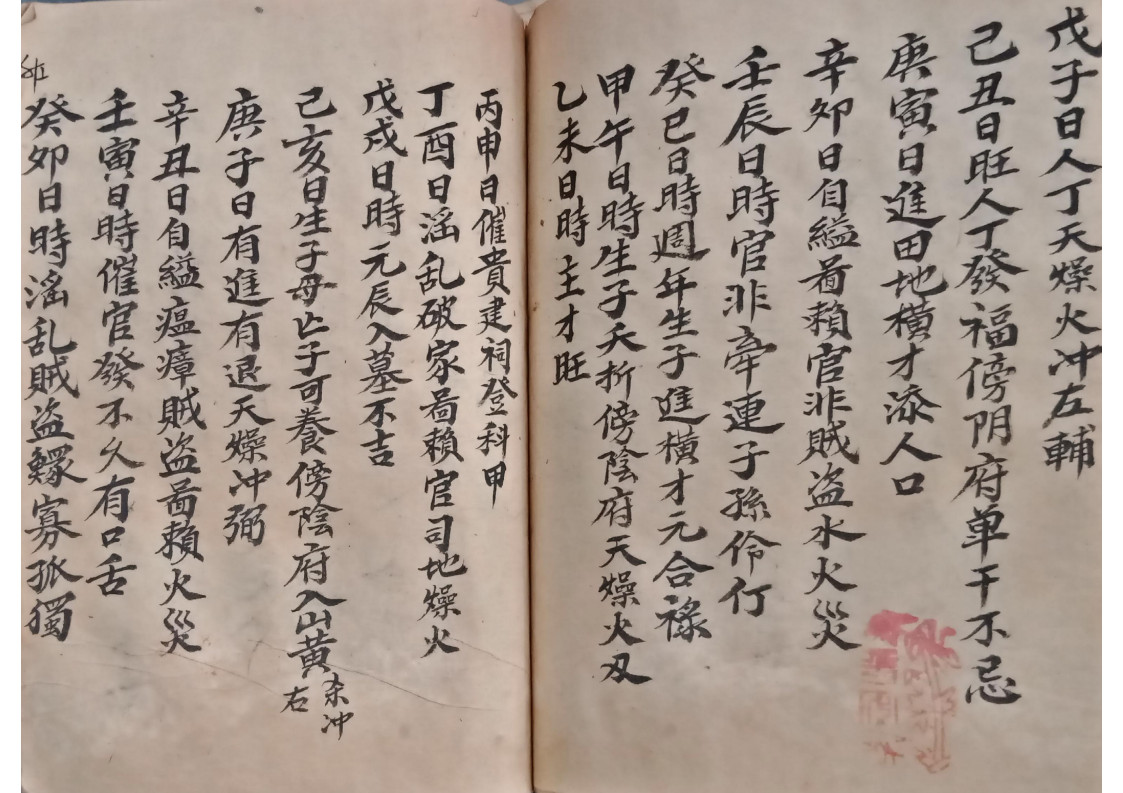 戊子日人丁天燥火冲左輔
己丑日旺人丁發福傍阴府单干不忌
庚寅日進田地横才添人口
辛夘日自縊啚賴官非贼盗水火災
壬辰日時官非牵連子孫伶仃
癸巳日時週年生子進横才元合祿
甲午日時生子夭折傍陰府天燥火刄
乙未日時主才旺
丙申日催貴建祠登科甲
丁酉日滛乱破家啚賴官司地燥火
戊戌日時元辰入墓不吉
己亥日生子母亡子可養傍陰府入山黄
杀冲
右
庚子日有進有退天燥冲弼
辛丑日自縊瘟瘴贼盗啚賴火災
壬寅日時催官發不久有口舌
癸夘日時滛乱贼盗鰥寡孤獨